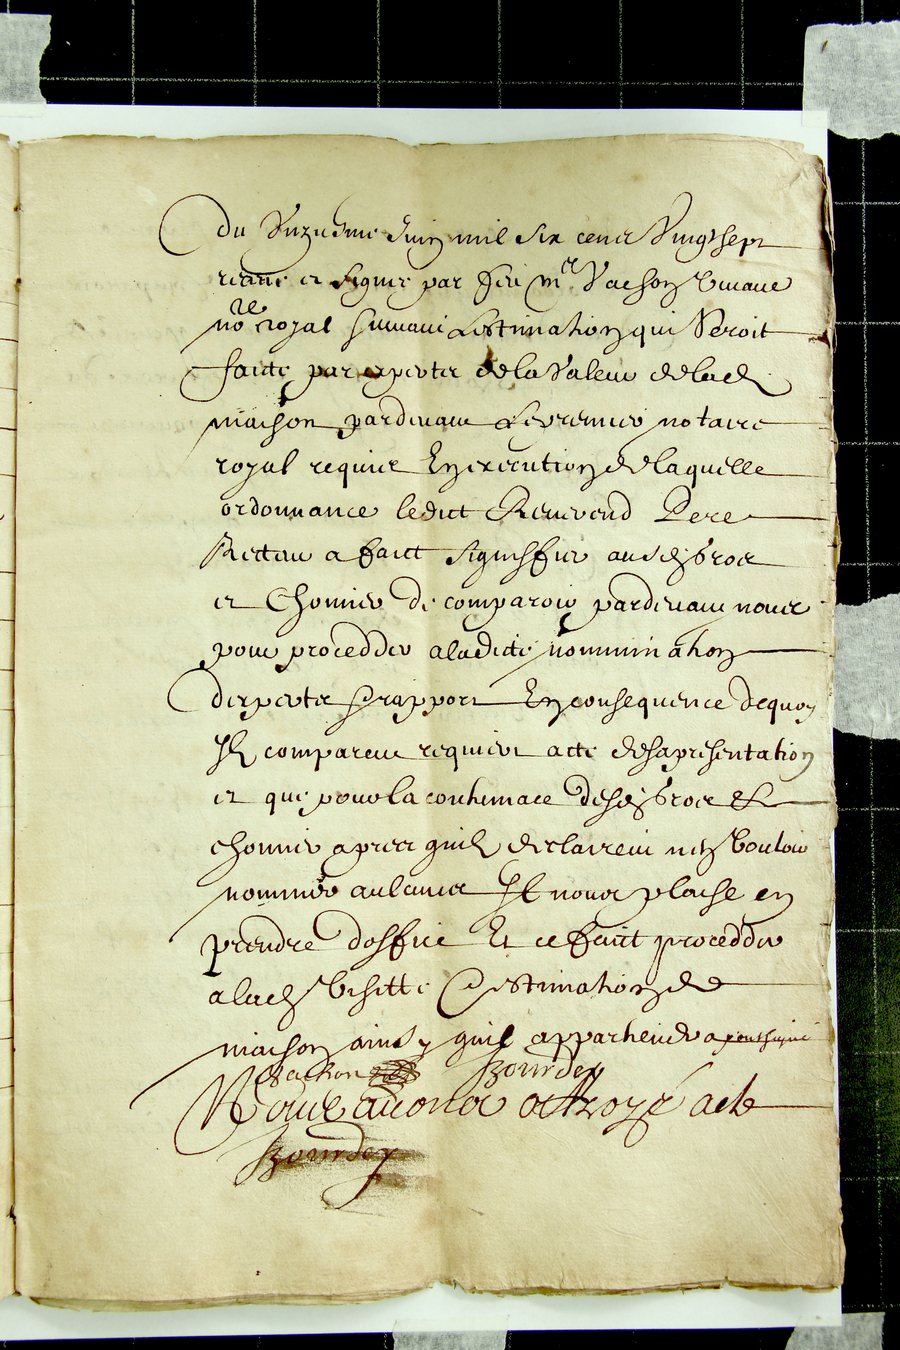 du unzuesme Juin mil six cens vingt sept
receue et signee par feu m.e Vachon vivant
no.re royal suivant Lestimation qui seroit
faicte par expertz de la valeur de lad
maison pardevant Levremier notaire
royal requise En execution de laquelle
ordonnance ledict Reverend Pere
Recteur a faict signiffier ausd Broce
et Chomier de comparoir pardevant nous
pour procedder a ladicte nommination
dexpertz & rapport En consequence dequoy
Il compareue requiert acte de sa presentation
et que pour la contumace desd Broce &
chomier apres quilz declairent nen vouloir
nommer aulcuns Il nous plaise en
prendre doffice Et ce faict procedder
a lad visitte & estimation de
maison ainsy quil appartiendra
Vachon Bourdey
Nous avons octroyé acte
Bourdey